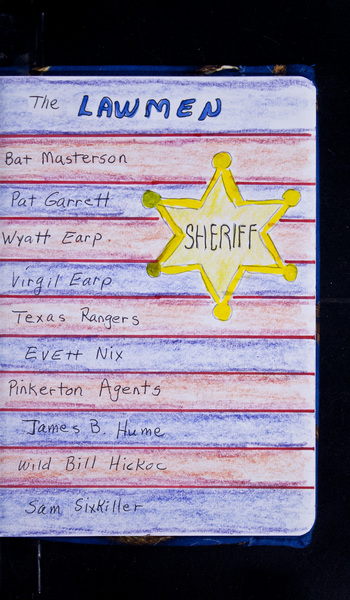 The LAWMEN
Bat Masterson
Pat Garrett
Wyatt Earp
SHERIFF
Virgil Earp
Texas Rangers
Evett Nix
Pinkerton Agents
James B. Hume
Wild Bill Hickoc
Sam Sixkiller